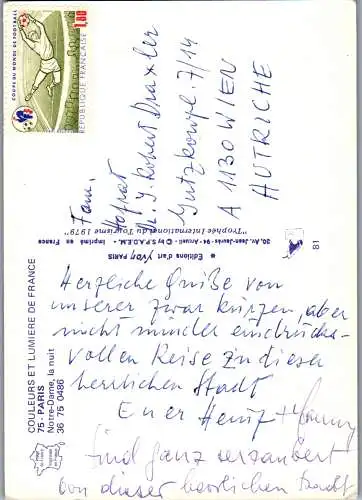 COUPE DU MONDE DE FOOTBALL
1,80
REPUBLIQUE FRANCAISE
Fam.
Hofrat
Robert Draxler
Gutzkowpl. 7/14
A 1130 WIEN
AUTRICHE
"Trophée International du Tourisme 1979"
30, Av. Jean-Jaurès - 94 - Arcueil - © by S.P.A.D.E.M. • Imprimé en France
Editions d'art Yvon PARIS
81
COULEURS ET LUMIERE DE FRANCE
75 - PARIS
Notre-Dame, la nuit
36 75 0486
Herzliche Grüße von
unserer zwar kurzen, aber
nicht minder eindrucks-
vollen Reise zu dieser
herrlichen Stadt
Euer
Sind ganz verzaubert
von dieser herrlichen Stadt